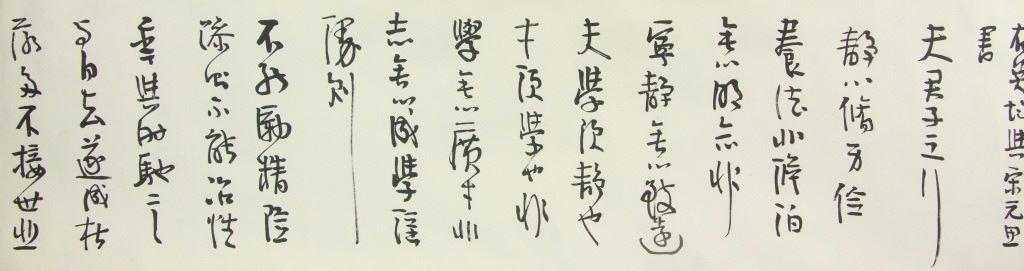 右吳均與宋元思
書
夫君子之行
靜以脩身儉
養德非澹泊
無以明志非
寧靜無以致遠
夫學須靜也
才須學也非
學無以廣才非
志無以成學
慢則
不能勵精險
躁則不能治性
年與時馳意
与日去遂成枯
落多不接世悲